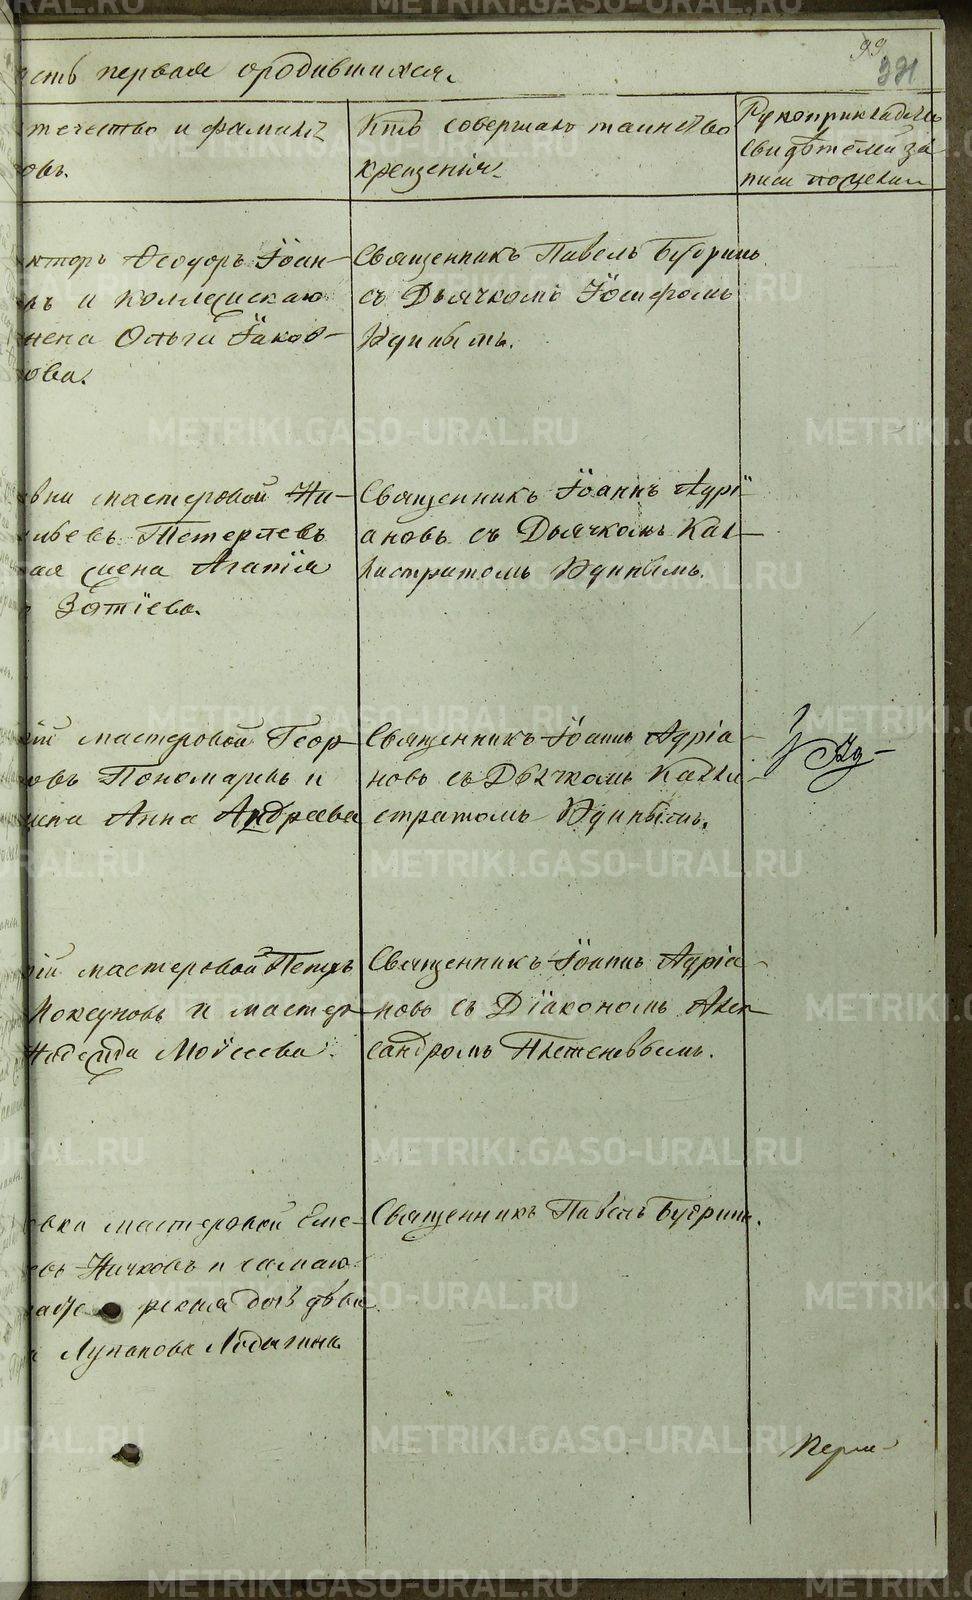 99
991
сть первая ородившихся.
течество и фамилiя
овъ.
Кто совершалъ таинство
крещенiя.
Рукоприкладство
свидѣтелей за
писи по желан.
кторъ Ѳеодоръ Iоан-
въ и Коллежская
жена Ольга Iаков-
ова.
Священникъ Павелъ Будринъ
съ Дьячкомъ Iосифомъ
Удинымъ.
мастеровой Ни-
Тетеревъ
ная жена Агапiя
Зотiева.
Священникъ Iоаннъ Адрi
ановъ съ Дьячкомъ Кал-
листратомъ Удинымъ.
кiй мастеровой Геор-
овъ Пономаревъ и
жена Анна Андреева
Священникъ Iоаннъ Адрiа-
новъ съ Дьячкомъ Калли-
стратомъ Удинымъ.
кiй мастеровой Петръ
Локсуновъ и мастер
Надежда Моѵсеева.
Священникъ Iоаннъ Адрiа-
новъ съ Дiакономъ Алек-
сандромъ Плетеневымъ.
мастеровой Еме-
евъ Ничковъ и
дочь двка
Лупанова Лодыгина
Священникъ Павелъ Будринъ.
METRIKI.GASO-URAL.RU